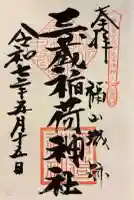 奉拝
福山城跡
三蔵稲荷神社
令和七年五月十五日